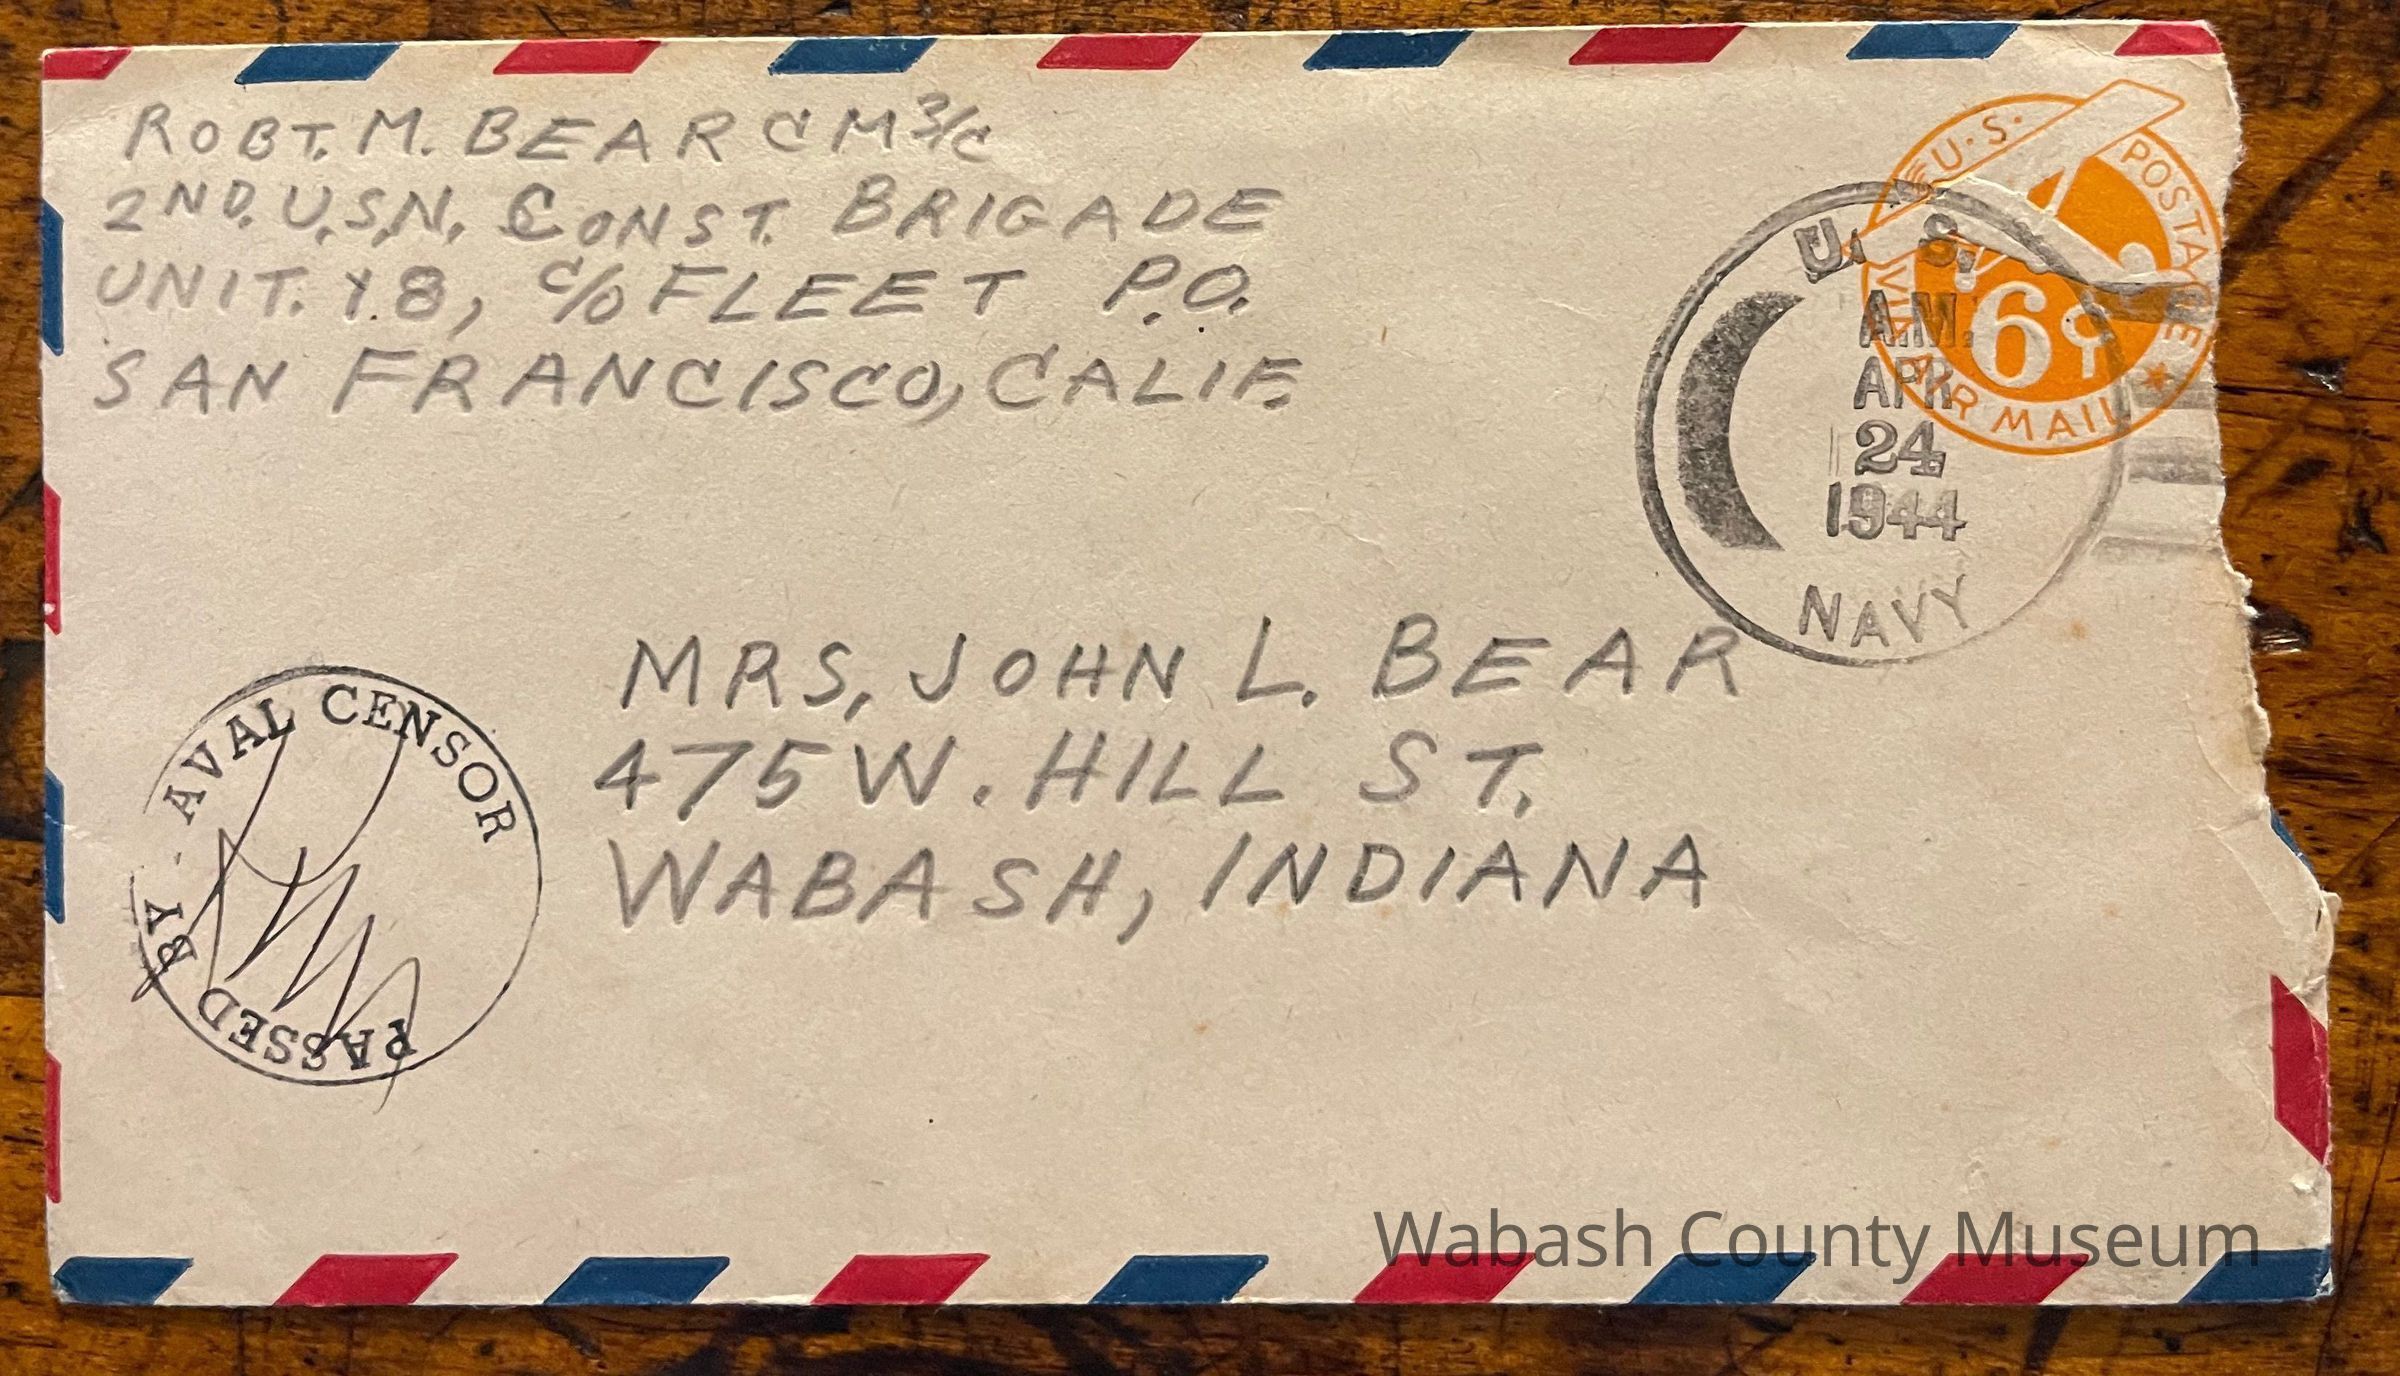 ROBT. M. BEAR CM 3/C
2ND. U.S.N. CONST. BRIGADE
UNIT. Y.8, C/O FLEET P.O.
SAN FRANCISCO, CALIF.
U.S. POSTAGE
VIA AIR MAIL
6¢
U. S.
A.M.
APR
24
1944
NAVY
MRS. JOHN L. BEAR
475 W. HILL ST.
WABASH, INDIANA
PASSED BY AVAL CENSOR
Wabash County Museum